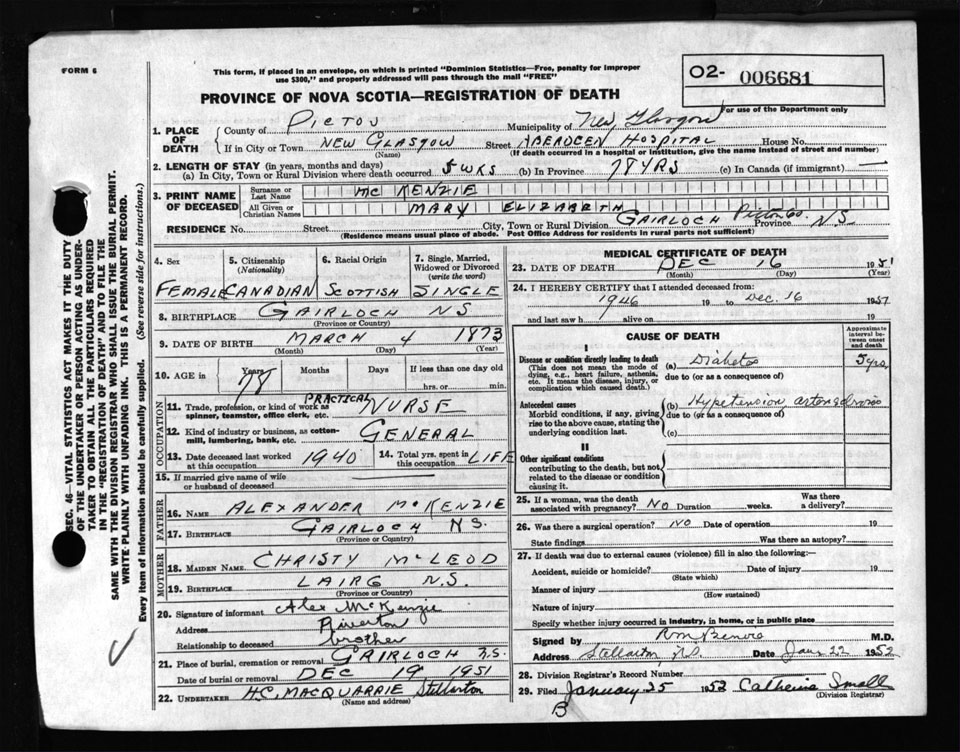 FORM 6
This form, if placed in an envelope, on which is printed "Dominion Statistics—Free, penalty for improper
use $300," and properly addressed will pass through the mail "FREE"
O2- 006681
For use of the Department only
PROVINCE OF NOVA SCOTIA—REGISTRATION OF DEATH
1. PLACE OF DEATH
County of PICTOU Municipality of New Glasgow
If in City or Town NEW GLASGOW Street ABERDEEN HOSPITAL House No.
(Name) (If death occurred in a hospital or institution, give the name instead of street and number)
2. LENGTH OF STAY (in years, months and days)
(a) In City, Town or Rural Division where death occurred 5 WKS (b) In Province 78 YRS (c) In Canada (if immigrant) —
3. PRINT NAME OF DECEASED
Surname or Last Name MC KENZIE
All Given or Christian Names MARY ELIZABETH
RESIDENCE No. Street City, Town or Rural Division GAIRLOCH Pictou Co. Province N.S.
(Residence means usual place of abode. Post Office Address for residents in rural parts not sufficient)
4. Sex
FEMALE
5. Citizenship (Nationality)
CANADIAN
6. Racial Origin
SCOTTISH
7. Single, Married, Widowed or Divorced (write the word)
SINGLE
8. BIRTHPLACE GAIRLOCH NS
(Province or Country)
9. DATE OF BIRTH MARCH 4 1873
(Month) (Day) (Year)
10. AGE in Years Months Days If less than one day old
78 hrs. or min.
OCCUPATION
11. Trade, profession, or kind of work as spinner, teamster, office clerk, etc. PRACTICAL NURSE
12. Kind of industry or business, as cotton-mill, lumbering, bank, etc. GENERAL
13. Date deceased last worked at this occupation 1940
14. Total yrs. spent in this occupation LIFE
15. If married give name of wife or husband of deceased
FATHER
16. NAME ALEXANDER MCKENZIE
17. BIRTHPLACE GAIRLOCH N.S.
(Province or Country)
MOTHER
18. MAIDEN NAME CHRISTY MCLEOD
19. BIRTHPLACE LAIRG N.S.
(Province or Country)
20. Signature of informant Alex McKenzie
Address Riverton
Relationship to deceased brother
21. Place of burial, cremation or removal GAIRLOCH N.S.
Date of burial or removal DEC 19 1951
22. UNDERTAKER H.C. MACQUARRIE Stellarton
(Name and address)
MEDICAL CERTIFICATE OF DEATH
23. DATE OF DEATH DEC 16 1951
(Month) (Day) (Year)
24. I HEREBY CERTIFY that I attended deceased from:
1946 19 to Dec. 16 1951
and last saw h alive on 19
CAUSE OF DEATH
Approximate interval between onset and death
I
Disease or condition directly leading to death
(This does not mean the mode of dying, e.g., heart failure, asthenia, etc. It means the disease, injury, or complication which caused death.)
(a) Diabetes 5 yrs.
due to (or as a consequence of)
Antecedent causes
Morbid conditions, if any, giving rise to the above cause, stating the underlying condition last.
(b) Hypetension
due to (or as a consequence of)
(c)
II
Other significant conditions
contributing to the death, but not related to the disease or condition causing it.
25. If a woman, was the death associated with pregnancy? NO Duration weeks. Was there a delivery?
26. Was there a surgical operation? NO Date of operation 19
State findings Was there an autopsy?
27. If death was due to external causes (violence) fill in also the following:—
Accident, suicide or homicide? Date of injury 19
(State which)
Manner of injury
(How sustained)
Nature of injury
Specify whether injury occurred in industry, in home, or in public place
Signed by M.D.
Address Stellarton, N.S. Date Jan 22 1952
28. Division Registrar's Record Number
29. Filed January 25 1952 Catherine Small
(Division Registrar)
B
SEC. 46—VITAL STATISTICS ACT MAKES IT THE DUTY
OF THE UNDERTAKER OR PERSON ACTING AS UNDER-
TAKER TO OBTAIN ALL THE PARTICULARS REQUIRED
IN THE "REGISTRATION OF DEATH" AND TO FILE THE
SAME WITH THE DIVISION REGISTRAR WHO SHALL ISSUE THE BURIAL PERMIT.
WRITE PLAINLY WITH UNFADING INK. THIS IS A PERMANENT RECORD.
Every item of Information should be carefully supplied. (See reverse side for instructions.)